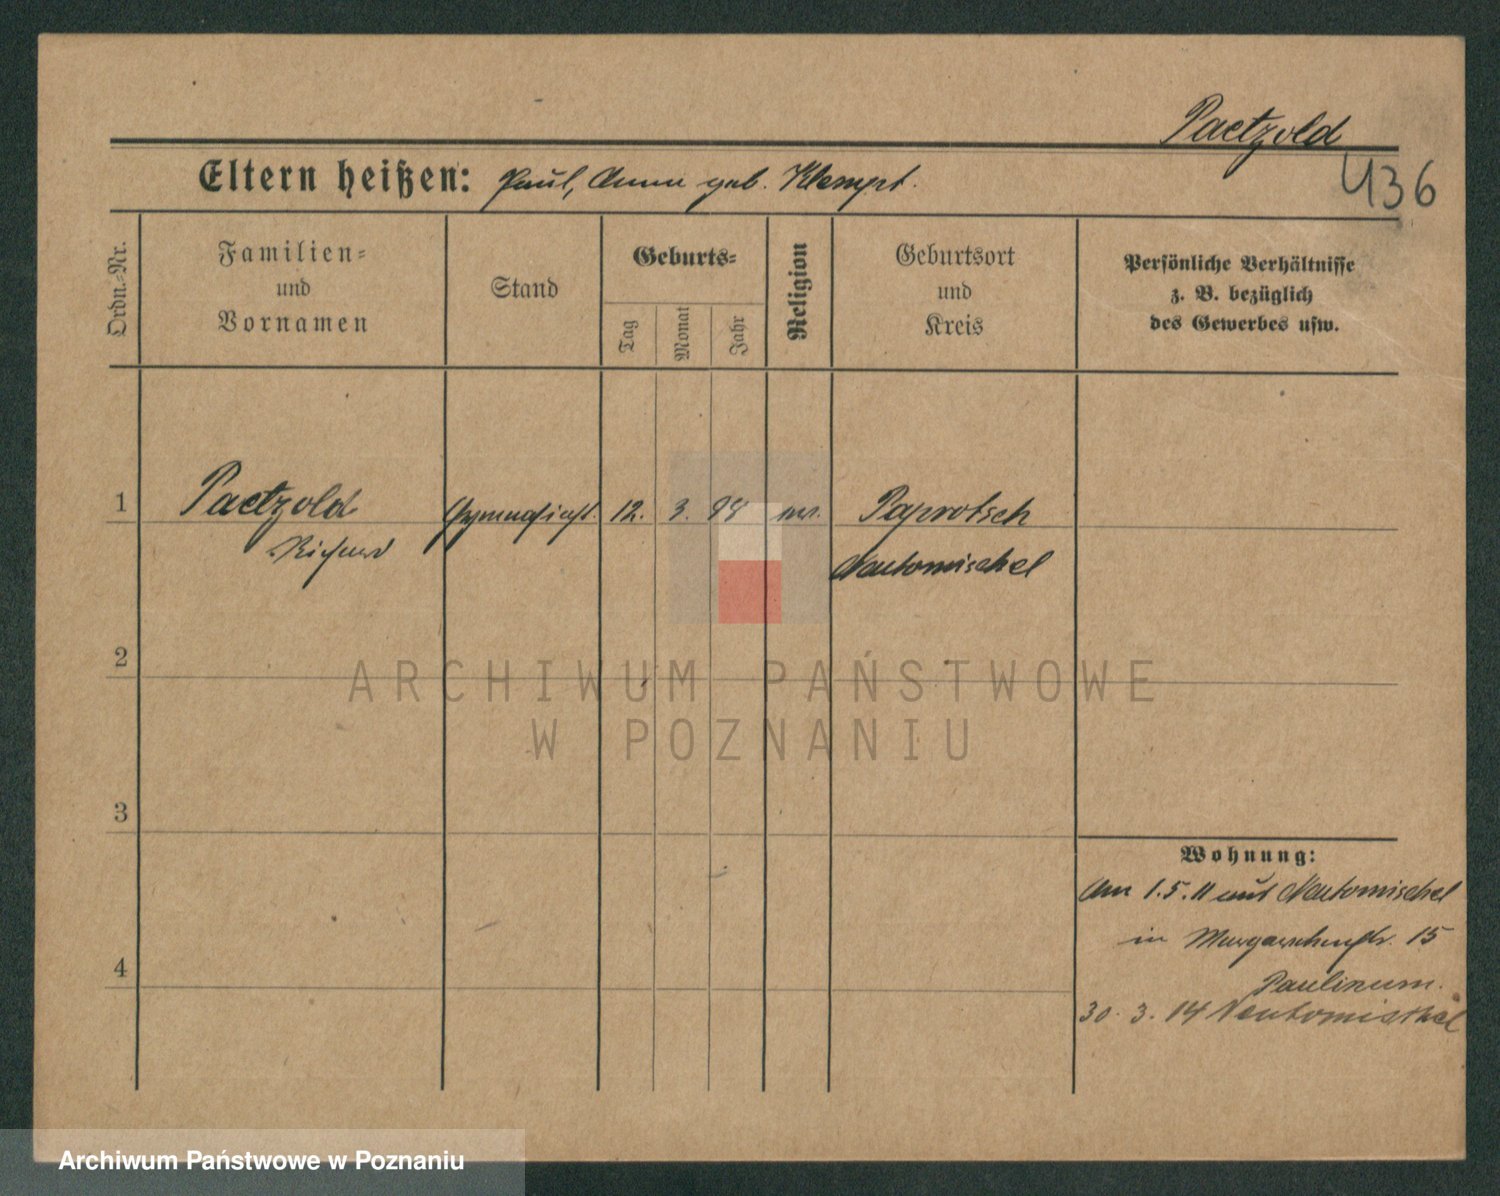 Paetzold
436
Eltern heißen: Paul, Anna geb. Klempt.
Ordn.-Nr.
Familien-
und
Vornamen
Stand
Geburts-
Tag
Monat
Jahr
Religion
Geburtsort
und
Kreis
Persönliche Verhältnisse
z. B. bezüglich
des Gewerbes usw.
1 Paetzold Gymnasiast. 12. 3. 98 Paprotsch
Richard Neutomischel
2
3
Wohnung:
Am 1.5.11 aus Neutomischel
in 15
4
Paulinum.
30. 3. 14 Neutomischel
ARCHIWUM PAŃSTWOWE
W POZNANIU
Archiwum Państwowe w Poznaniu